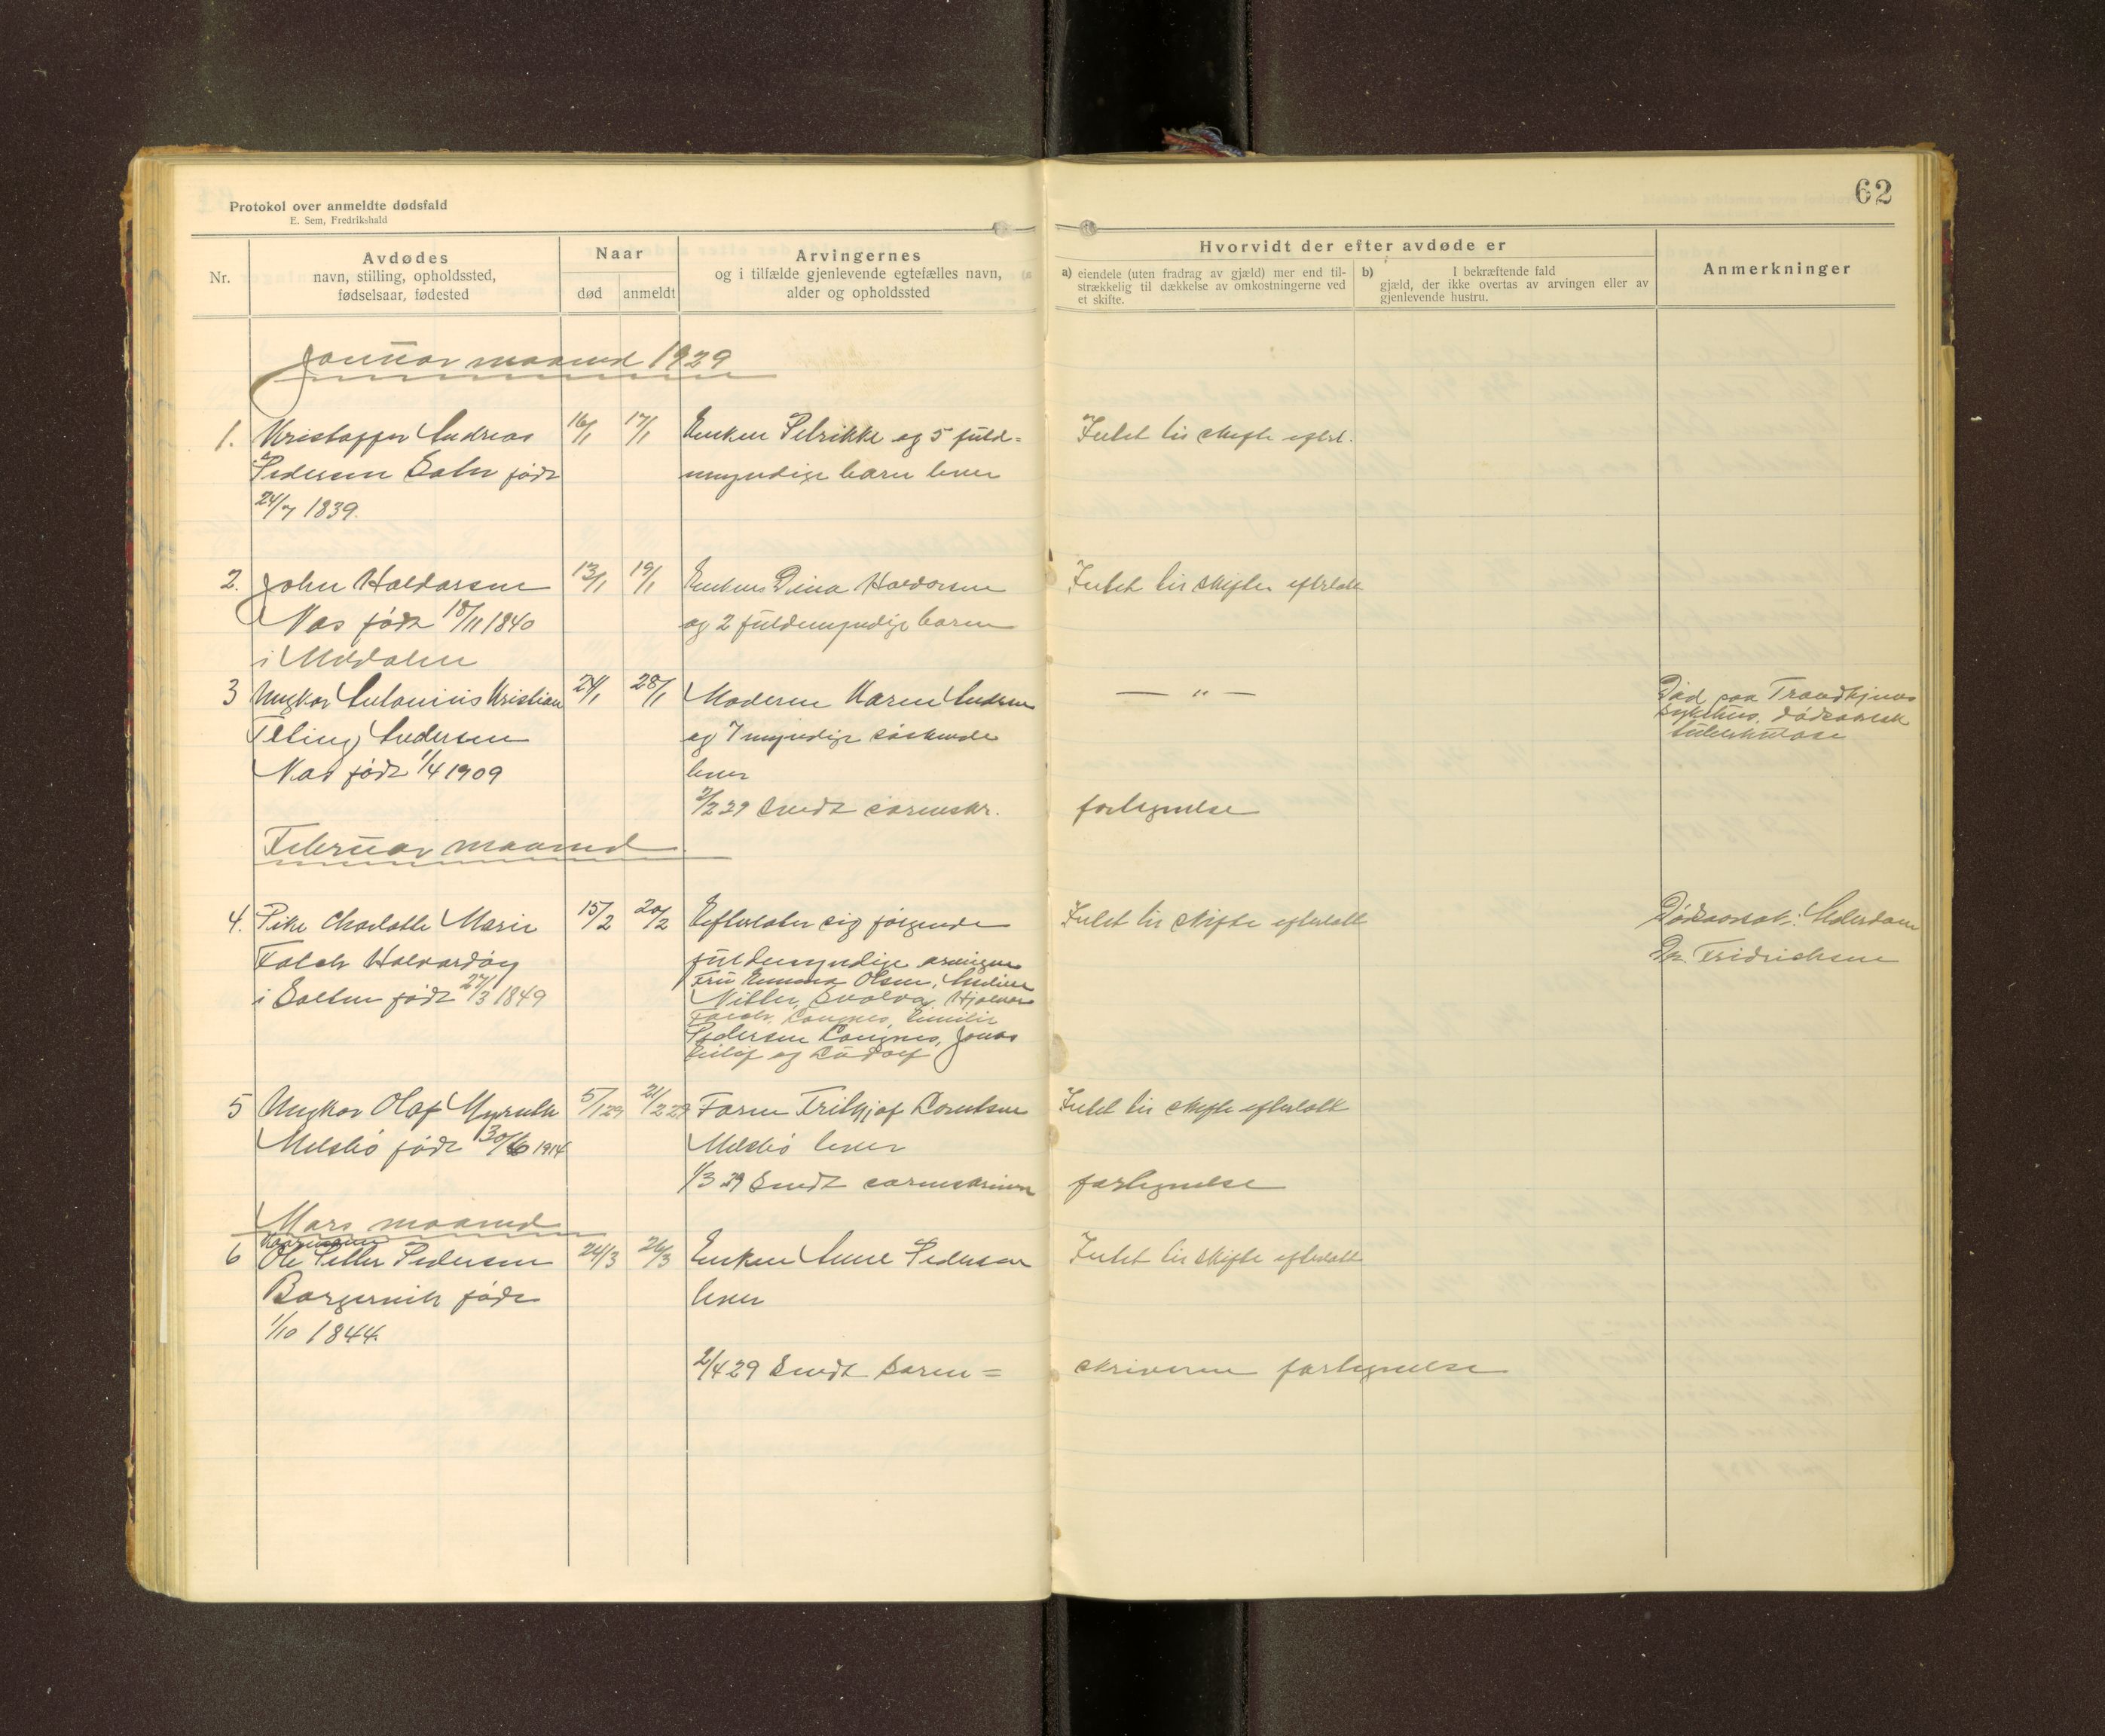 62
Protokol over anmeldte dødsfald
E. Sem, Fredrikshald
Nr.
Avdødes
navn, stilling, opholdssted,
fødselsaar, fødested
Naar
død
anmeldt
Arvingernes
og i tilfælde gjenlevende egtefælles navn,
alder og opholdssted
Hvorvidt der efter avdøde er
a) eiendele (uten fradrag av gjæld) mer end til-
strækkelig til dækkelse av omkostningerne ved
et skifte.
b) I bekræftende fald
gjæld, der ikke overtas av arvingen eller av
gjenlevende hustru.
Anmerkninger
Januar maaned 1929
1. Kristoffer Andreas 16/1 17/1 Enken Petrikke og 5 fuld= Intet til skifte efterl.
Pedersen født myndige barn lever
24/7 1839.
2. John Haldorsen 13/1 19/1 Enken Dina Haldorsen Intet til skifte efterlatt
Nas født 18/11 1840 og 2 fuldmyndige barn
i
3 Ungkar Antonius Kristian 24/1 28/1 Moderen Karen Andersen — " — Død paa Trondhjems
Andersen og 7 myndige søskende sykehus. dødsaarsak
Nas født 1/4 1909 lever tuberkulose
2/2 29 Sendt sorenskr. fortegnelse
Februar maaned
4. Pike Charlotte Marie 15/2 20/2 Efterlater sig følgende Intet til skifte efterlatt Dødsaarsak: Alderdom
Falch Halvardøy fuldmyndige arvinger Dr. Fridrichsen
i født 27/3 1849 Fru Emma Olsen,
Svolvær, Hjalmar
Falch, Emilie
Pedersen Jonas
og
5 Ungkar Olaf 5/1 29 21/2 29 Faren Intet til skifte efterlatt
født 30/6 1914 lever
1/3 29 Sendt sorenskriveren fortegnelse
Mars maaned
6 Ole Petter Pedersen 24/3 26/3 Enken Anne Pedersen Intet til skifte efterlatt
født lever
1/10 1844.
2/4 29 Sendt soren= skriveren fortegnelse